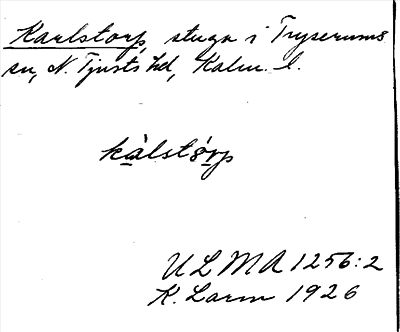 Karlstorp, stuga i Tryserums
sn, N. Tjusts hd, Kalm. l.
kàlstórp
ULMA 1256:2
K. Larm 1926